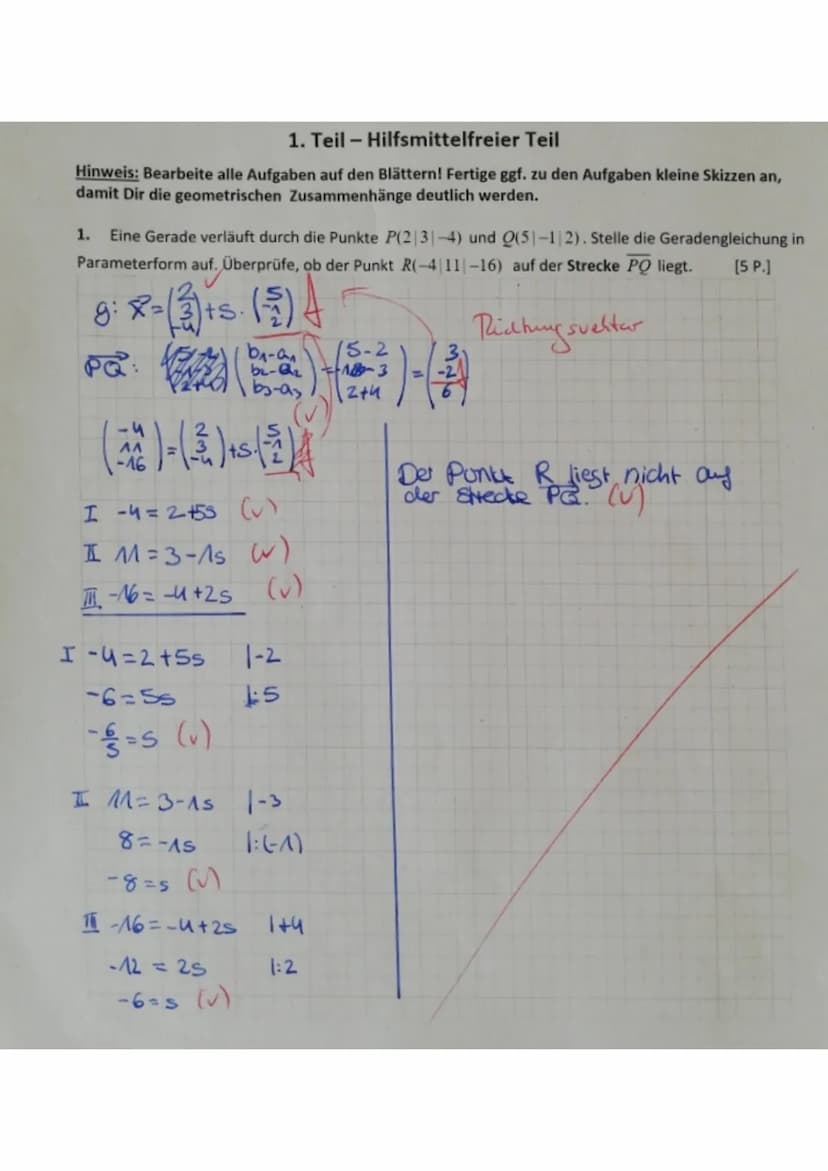 1. Teil – Hilfsmittelfreier Teil
Hinweis: Bearbeite alle Aufgaben auf den Blättern! Fertige ggf. zu den Aufgaben kleine Skizzen an,
damit Dir die geometrischen Zusammenhänge deutlich werden.
1. Eine Gerade verläuft durch die Punkte P(2|3|−4) und Q(5|−1|2). Stelle die Geradengleichung in
Parameterform auf. Überprüfe, ob der Punkt R(−4|11|−16) auf der Strecke PQ liegt. [5 P.]
g: x = (2 3 -4) + s · (5 -1 2)
Richtungsvektor
PQ: (b1-a1 b2-a2 b3-a3) = (5-2 -1-3 2+4) = (3 -2 6)
(√)
(-4 11 -16) = (2 3 -4) + s · (5 -1 2)
Der Punkt R liegt nicht auf
der Strecke PQ. (√)
I -4 = 2+5s (√)
II 11 = 3-1s (√)
III -16 = -4+2s (√)
I -4 = 2+5s |-2
-6 = 5s |:5
-6/5 = s (√)
II 11 = 3-1s |-3
8 = -1s |:(-1)
-8 = s (√)
III -16 = -4+2s |+4
-12 = 2s |:2
-6 = s (√)